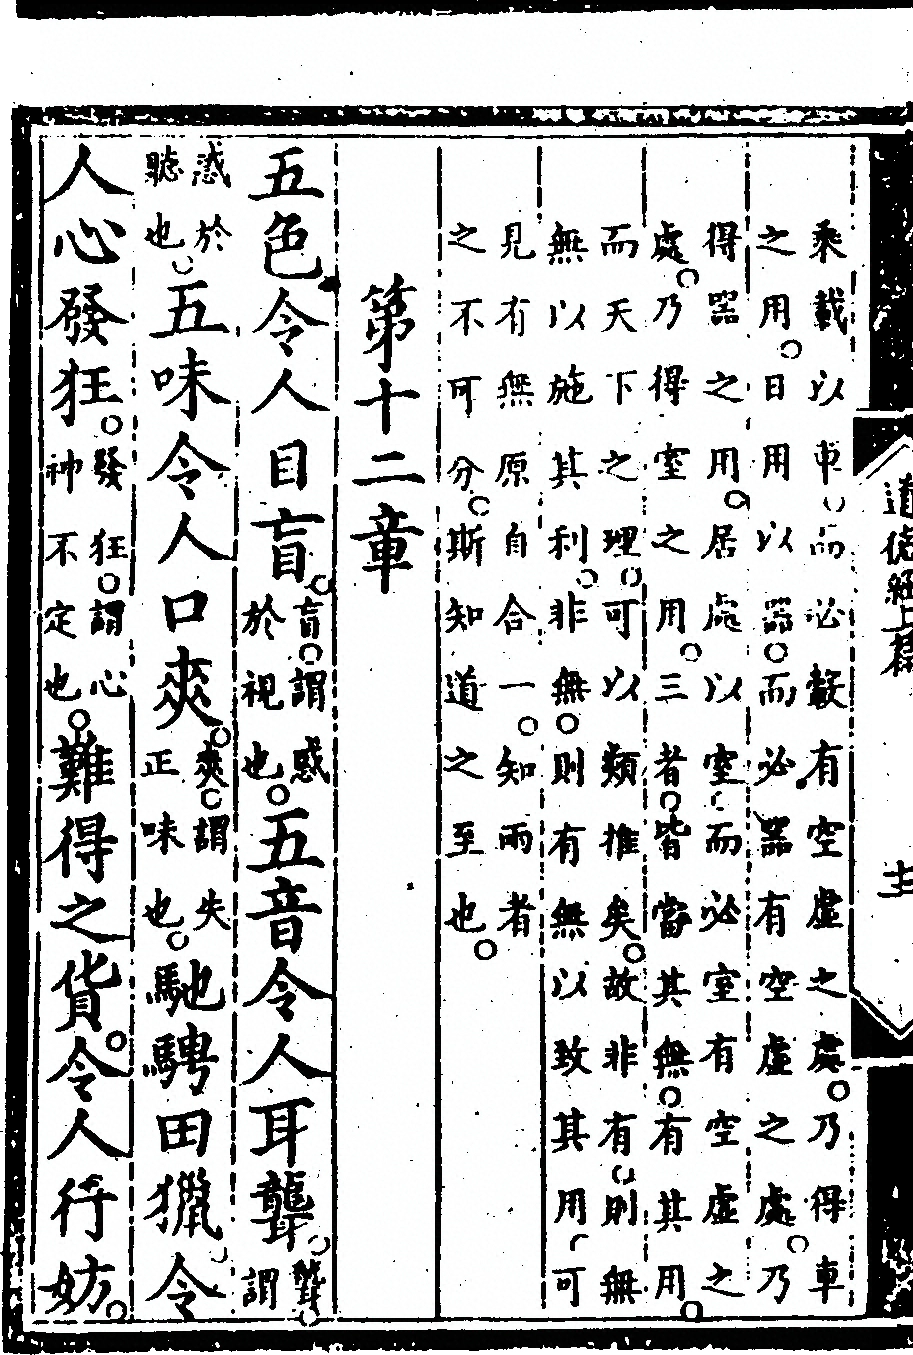 道德經上篇
乘載以車。而必轂有空虛之處。乃得車
之用。日用以器。而必器有空虛之處。乃
得器之用。居處以室。而必室有空虛之
處。乃得室之用。三者。皆當其無。有其用。
而天下之理。可以類推矣。故非有。則無
無以施其利。非無。則有無以致其用。可
見有無原自合一。知兩者
之不可分。斯知道之至也。
第十二章
五色令人目盲。盲。謂惑於視也。五音令人耳聾。聾。謂
惑於聽也。五味令人口爽。爽。謂失正味也。馳騁田獵。令
人心發狂。發狂。謂心神不定也。難得之貨。令人行妨。